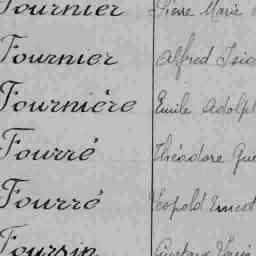 Fournier Pierre Marie
Fournier Alfred
Fournière Emile Adolph
Fourré Théodore
Fourré Léopold Ernest
Foursin Gustave